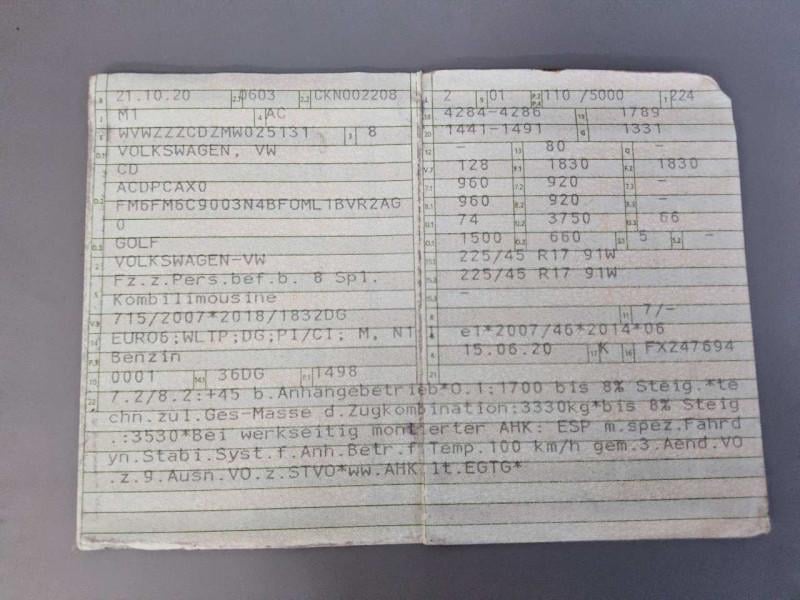 B 21.10.20 2.1 0603 2.2 CKN002208
J M1 4 AC
E WVWZZZCDZMW025131 3 8
D.1 VOLKSWAGEN, VW
CD
D.2 ACDPCAX0
FM6FM6C9003N4BFOML1BVR2AG
0
D.3 GOLF
2 VOLKSWAGEN-VW
5 Fz.z.Pers.bef.b. 8 Spl.
Kombilimousine
V.9 715/2007*2018/1832DG
14 EURO6;WLTP;DG;PI/CI; M, N1 I
P.3 Benzin
10 0001 14.1 36DG P.1 1498
L 2 9 01 P.2 P.4 110 /5000 T 224
18 4284-4286 19 1789
20 1441-1491 G 1331
12 - 13 80 Q -
V.7 128 F.1 1830 F.2 1830
7.1 960 7.2 920 7.3 -
8.1 960 8.2 920 8.3 -
U.1 74 U.2 3750 U.3 66
O.1 1500 O.2 660 S.1 5 S.2 -
15.1 225/45 R17 91W
15.2 225/45 R17 91W
15.3 -
R 11 7/-
K e1*2007/46*2014*06
6 15.06.20 17 K 16 FX247694
21
22 7.2/8.2:+45 b.Anhängebetrieb*O.1:1700 bis 8% Steig.*te
chn.zul.Ges-Masse d.Zugkombination:3330kg*bis 8% Steig
.:3530*Bei werkseitig montierter AHK: ESP m.spez.Fahrd
yn.Stabi.Syst.f.Anh.Betr.f.Temp.100 km/h gem.3.Aend.VO
.z.9.Ausn.VO.z.STVO*ww.AHK lt.EGTG*